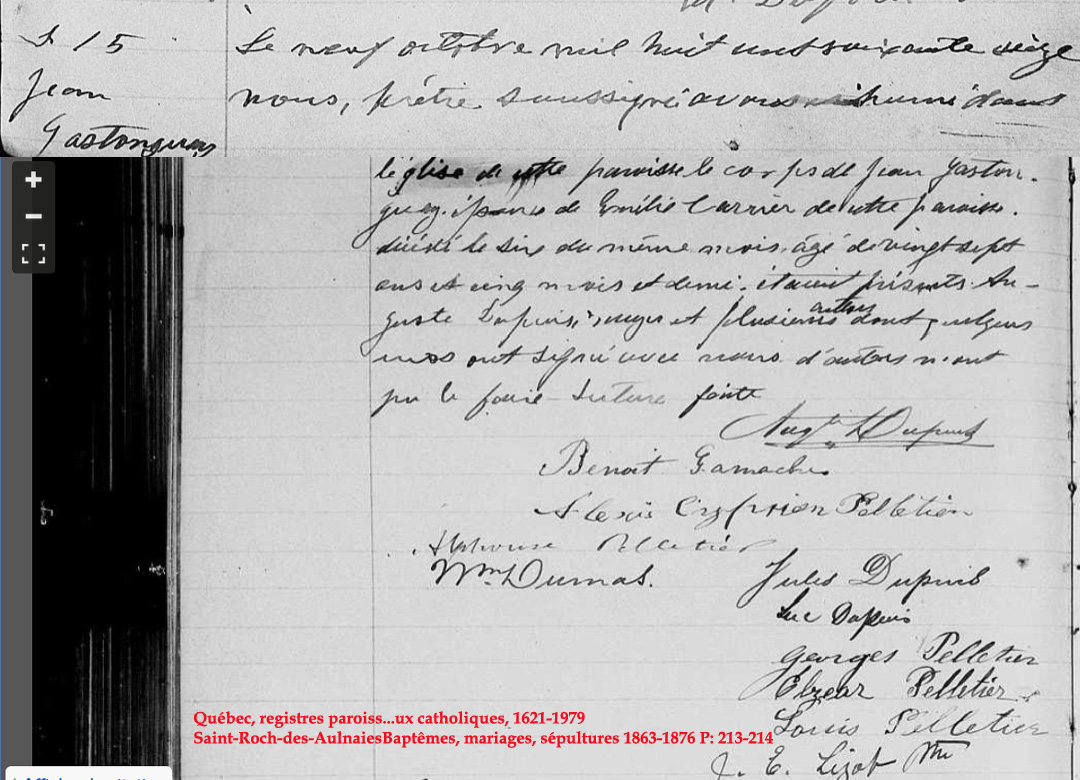 S 15
Jean
Gastonguay
Le neuf octobre mil huit cent soixante seize
nous, prêtre soussigné avons inhumé dans
l'église de cette paroisse le corps de Jean Gaston-
guay. époux de Emilie Carrier de cette paroisse.
décédé le six du même mois, âgé de vingt sept
ans et cinq mois et demi. étaient présents Au-
guste Dupuis, et plusieurs autres dont quelques
uns ont signé avec nous. d'autres n'ont
pu le faire lecture faite
Augte Dupuis
Benoit Gamache
Alexis Cyprien Pelletier
Alphonse Pelletier
Wm Dumas.
Jules Dupuis
Luc Dupuis
Georges Pelletier
Elzear Pelletier
Louis Pelletier
J. E. Lizot
Québec, registres paroiss...ux catholiques, 1621-1979
Saint-Roch-des-AulnaiesBaptêmes, mariages, sépultures 1863-1876 P: 213-214